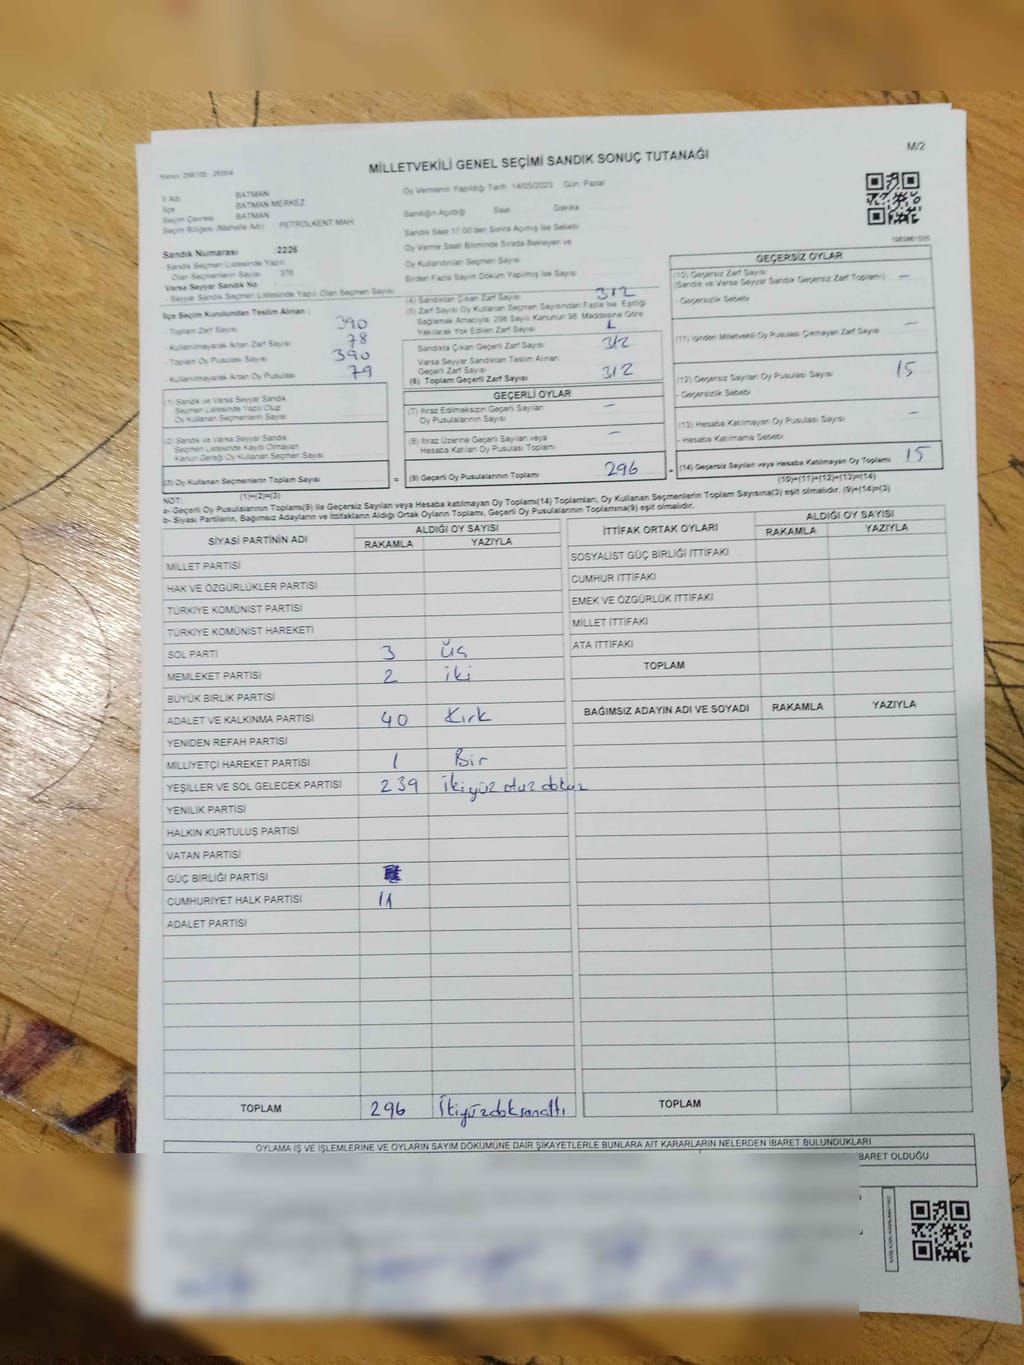 M/2
MİLLETVEKİLİ GENEL SEÇİMİ SANDIK SONUÇ TUTANAĞI
İl Adı BATMAN
İlçe BATMAN MERKEZ
Seçim Çevresi BATMAN
Seçim Bölgesi (Mahalle Adı) PETROLKENT MAH
Sandık Numarası :2226
- Sandık Seçmen Listesinde Yazılı
Olan Seçmenlerin Sayısı : 378
Varsa Seyyar Sandık No :
- Seyyar Sandık Seçmen Listesinde Yazılı Olan Seçmen Sayısı
İlçe Seçim Kurulundan Teslim Alınan :
- Toplam Zarf Sayısı 390
- Kullanılmayarak Artan Zarf Sayısı 78
- Toplam Oy Pusulası Sayısı 390
- Kullanılmayarak Artan Oy Pusulası 79
(1) Sandık ve Varsa Seyyar Sandık
Seçmen Listesinde Yazılı Olup
Oy Kullanan Seçmenlerin Sayısı
(2) Sandık ve Varsa Seyyar Sandık
Seçmen Listesinde Kayıtlı Olmayan
Kanun Gereği Oy Kullanan Seçmen Sayısı
(3) Oy Kullanan Seçmenlerin Toplam Sayısı
(1)+(2)=(3)
Oy Vermenin Yapıldığı Tarih 14/05/2023 Gün: Pazar
Sandığın Açıldığı Saat Dakika
Sandık Saat 17.00'den Sonra Açılmış İse Sebebi
Oy Verme Saati Bitiminde Sırada Bekleyen ve
Oy Kullandırılan Seçmen Sayısı
Birden Fazla Sayım Döküm Yapılmış İse Sayısı
(4) Sandıktan Çıkan Zarf Sayısı 312
(5) Zarf Sayısı Oy Kullanan Seçmen Sayısından Fazla İse, Eşitliği
Sağlamak Amacıyla, 298 Sayılı Kanunun 98. Maddesine Göre
Yakılarak Yok Edilen Zarf Sayısı
Sandıkta Çıkan Geçerli Zarf Sayısı 312
Varsa Seyyar Sandıktan Teslim Alınan
Geçerli Zarf Sayısı
(6) Toplam Geçerli Zarf Sayısı 312
GEÇERLİ OYLAR
(7) İtiraz Edilmeksizin Geçerli Sayılan
Oy Pusulalarının Sayısı –
(8) İtiraz Üzerine Geçerli Sayılan veya
Hesaba Katılan Oy Pusulası Toplamı –
= (9) Geçerli Oy Pusulalarının Toplamı 296
GEÇERSİZ OYLAR
(10) Geçersiz Zarf Sayısı
(Sandık ve Varsa Seyyar Sandık Geçersiz Zarf Toplamı) –
- Geçersizlik Sebebi
(11) İçinden Milletvekili Oy Pusulası Çıkmayan Zarf Sayısı –
(12) Geçersiz Sayılan Oy Pusulası Sayısı 15
- Geçersizlik Sebebi
(13) Hesaba Katılmayan Oy Pusulası Sayısı –
- Hesaba Katılmama Sebebi
(14) Geçersiz Sayılan veya Hesaba Katılmayan Oy Toplamı 15
(10)+(11)+(12)+(13)=(14)
NOT:
a- Geçerli Oy Pusulalarının Toplamı(9) ile Geçersiz Sayılan veya Hesaba katılmayan Oy Toplamı(14) Toplamları, Oy Kullanan Seçmenlerin Toplam Sayısına(3) eşit olmalıdır. (9)+(14)=(3)
b- Siyasi Partilerin, Bağımsız Adayların ve İttifakların Aldığı Ortak Oyların Toplamı, Geçerli Oy Pusulalarının Toplamına(9) eşit olmalıdır.
SİYASİ PARTİNİN ADI ALDIĞI OY SAYISI
RAKAMLA YAZIYLA
MİLLET PARTİSİ
HAK VE ÖZGÜRLÜKLER PARTİSİ
TÜRKİYE KOMÜNİST PARTİSİ
TÜRKİYE KOMÜNİST HAREKETİ
SOL PARTİ 3 üç
MEMLEKET PARTİSİ 2 iki
BÜYÜK BİRLİK PARTİSİ
ADALET VE KALKINMA PARTİSİ 40 Kırk
YENİDEN REFAH PARTİSİ
MİLLİYETÇİ HAREKET PARTİSİ 1 Bir
YEŞİLLER VE SOL GELECEK PARTİSİ 239 ikiyüz otuz dokuz
YENİLİK PARTİSİ
HALKIN KURTULUŞ PARTİSİ
VATAN PARTİSİ
GÜÇ BİRLİĞİ PARTİSİ
CUMHURİYET HALK PARTİSİ 11
ADALET PARTİSİ
TOPLAM 296 ikiyüzdoksanaltı
İTTİFAK ORTAK OYLARI ALDIĞI OY SAYISI
RAKAMLA YAZIYLA
SOSYALİST GÜÇ BİRLİĞİ İTTİFAKI
CUMHUR İTTİFAKI
EMEK VE ÖZGÜRLÜK İTTİFAKI
MİLLET İTTİFAKI
ATA İTTİFAKI
TOPLAM
BAĞIMSIZ ADAYIN ADI VE SOYADI RAKAMLA YAZIYLA
TOPLAM
OYLAMA İŞ VE İŞLEMLERİNE VE OYLARIN SAYIM DÖKÜMÜNE DAİR ŞİKAYETLERLE BUNLARA AİT KARARLARIN NELERDEN İBARET BULUNDUKLARI
BARET OLDUĞU